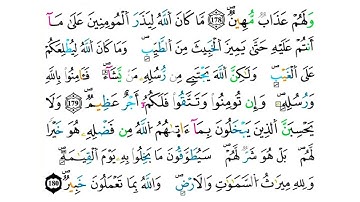 وَلَهُمْ عَذَابٌ مُّهِينٌ ١٧٨ مَّا كَانَ اللَّهُ لِيَذَرَ الْمُؤْمِنِينَ عَلَىٰ مَآ
أَنتُمْ عَلَيْهِ حَتَّىٰ يَمِيزَ الْخَبِيثَ مِنَ الطَّيِّبِ ۗ وَمَا كَانَ اللَّهُ لِيُطْلِعَكُمْ
عَلَى الْغَيْبِ وَلَٰكِنَّ اللَّهَ يَجْتَبِى مِن رُّسُلِهِۦ مَن يَشَآءُ ۖ فَـَٔامِنُوا۟ بِاللَّهِ
وَرُسُلِهِۦ ۚ وَإِن تُؤْمِنُوا۟ وَتَتَّقُوا۟ فَلَكُمْ أَجْرٌ عَظِيمٌ ١٧٩ وَلَا
يَحْسَبَنَّ الَّذِينَ يَبْخَلُونَ بِمَآ ءَاتَىٰهُمُ اللَّهُ مِن فَضْلِهِۦ هُوَ خَيْرًا
لَّهُم ۖ بَلْ هُوَ شَرٌّ لَّهُمْ ۖ سَيُطَوَّقُونَ مَا بَخِلُوا۟ بِهِۦ يَوْمَ الْقِيَٰمَةِ ۗ
وَلِلَّهِ مِيرَٰثُ السَّمَٰوَٰتِ وَالْأَرْضِ ۗ وَاللَّهُ بِمَا تَعْمَلُونَ خَبِيرٌ ١٨٠